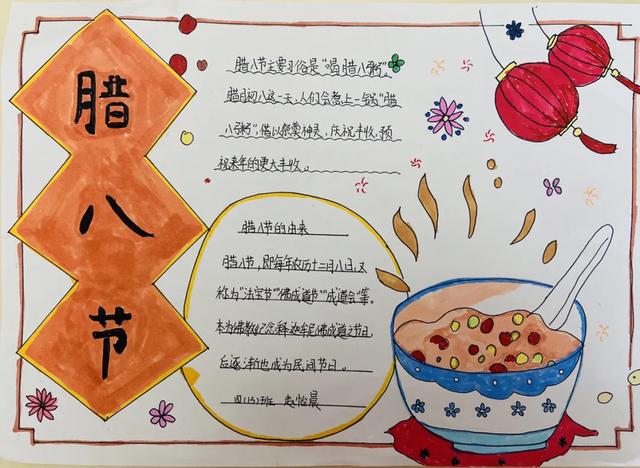 腊
八
节
腊八节主要习俗是“喝腊八粥”
腊月初八这一天,人们会煮上一锅“腊
八粥”借以祭奠神灵,庆祝丰收,预
祝来年的更大丰收。
腊八节的由来
腊八节,即每年农历十二月八日,又
称为“法宝节”“佛成道节”“成道会”等。
本为佛教纪念释迦牟尼佛成道之节日,
后逐渐也成为民间节日。
四(3)班 赵怡晨